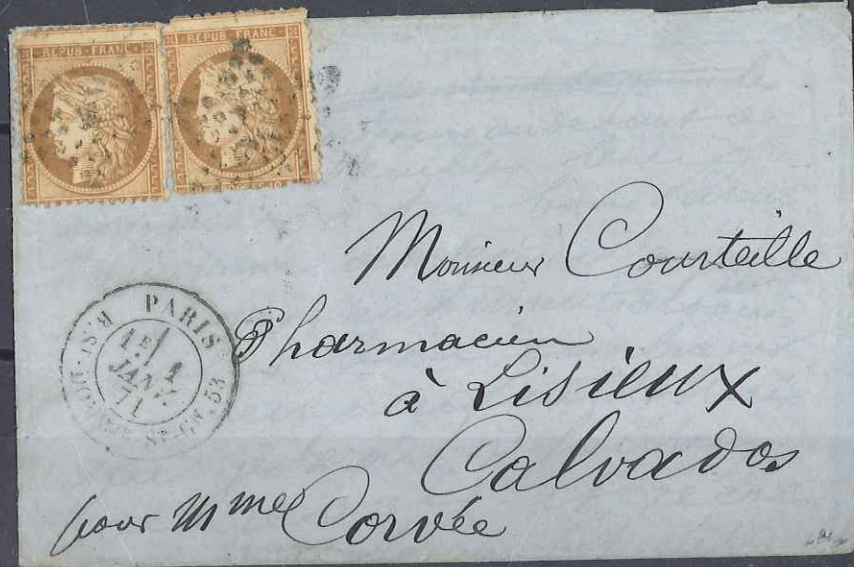 REPUB · FRANC
REPUB · FRANC
PARIS
1E/ 1
JANV.
71
R. ST-DOMque ST-GN. 53
Monsieur Courteille
Pharmacien
à Lisieux
Calvados
pour Mme Corvée